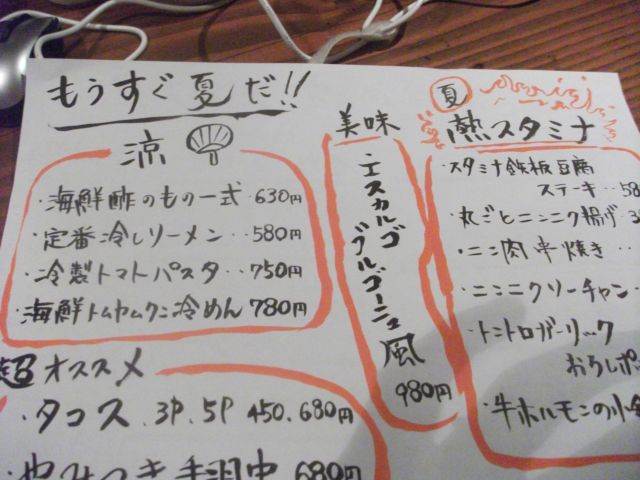 もうすぐ夏だ!!
涼
・海鮮酢のもの一式・630円
・定番冷しソーメン・・580円
・冷製トマトパスタ・・750円
・海鮮トムヤムクン冷めん 780円
超オススメ
・タコス・3P.5P 450.680円
680円
美味
・エスカルゴ
ブルゴーニュ風
980円
夏
熱スタミナ
・スタミナ鉄板豆腐
ステーキ・・58
・丸ごとニンニク揚げ
・ニンニク肉串焼き・・
・ニンニクソーチャン・
・トントロガーリック
おろしポ
・牛ホルモンの小